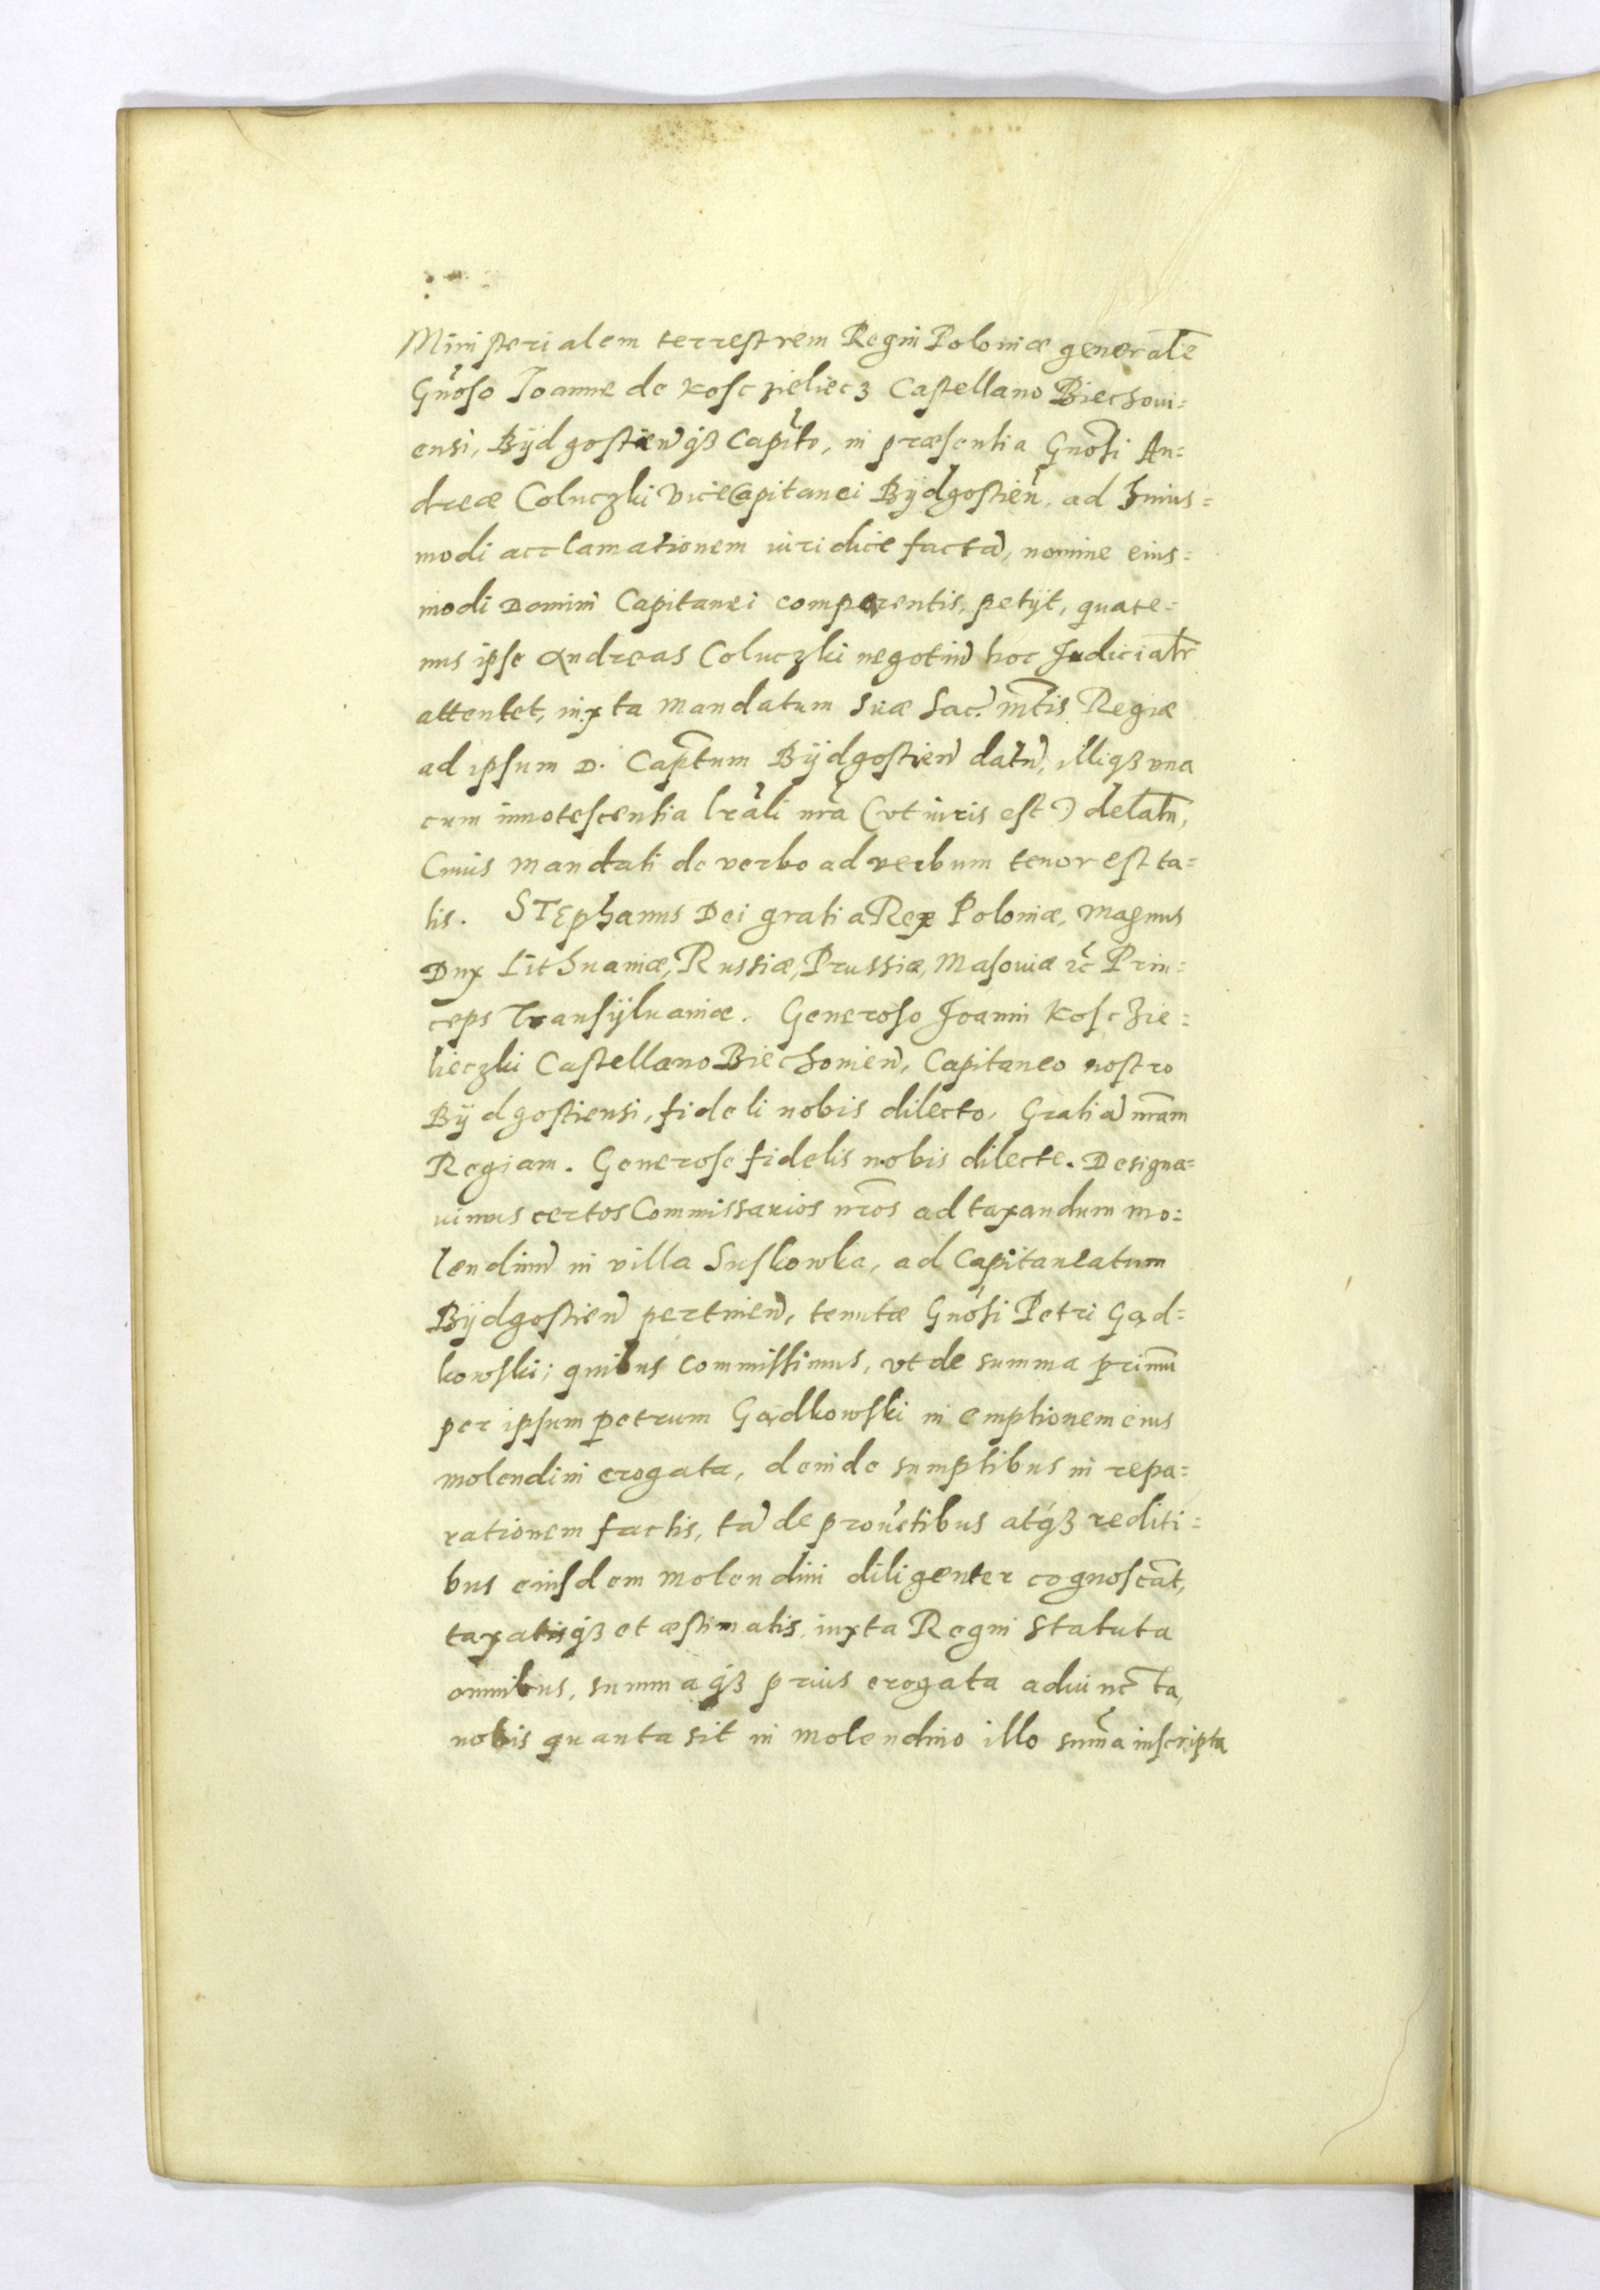 Ministerialem terrestrem Regni Poloniæ generalē
Gn̄oso Joanne de Kosczieliecz Castellano Biechoui=
ensi, Bÿdgostien̄ qꝫ Capit̄o, in præsentia Gnōsi An=
dreæ Coluczki ViceCapitanei Bÿdgostien̄, ad huius=
modi acclamationem iuridice factā, nomine eius=
modi Domini Capitanei comparentis, petÿt, quate=
nus ipse Andreas Coluczki negotiū hoc Judicialr̄
attentet, iuxta mandatum suæ Sac. Mt̄is Regiæ
ad ipsum D. Capt̄um Bÿdgostien̄ datū, illiqꝫ vna
cum innotescentia lr̄ali nr̄a (vt iuris est) delatū,
Cuius mandati de verbo ad verbum tenor est ta=
lis. STEphanus Dei gratia Rex Poloniæ, Magnus
Dux Lithuaniæ, Russiæ, Prussiæ, Masouiæ ꝛc̄ Prin=
ceps Transÿluaniæ. Generoso Joanni Kosczie=
lieczki Castellano Biechouien̄, Capitaneo nostro
Bÿdgostiensi, fideli nobis dilecto, Gratiā nr̄am
Regiam. Generose fidelis nobis dilecte. Designa=
uimus certos Commissarios nr̄os ad taxandum mo=
lendinū in villa Suskowka, ad Capitaneatum
Bÿdgostien̄ pertinen̄, tenutæ Gnōsi Petri Gąd=
kowski; quibus commissimus, vt de summa primū
per ipsum Petrum Gądkowski in emptionem eius
molendini erogata, deinde sumptibus in repa=
rationem factis, tā de prouētibus atqꝫ rediti=
bus eiusdem molendini diligenter cognoscāt,
taxatisqꝫ et æstimatis iuxta Regni Statuta
omnibus, summaqꝫ prius erogata adiuncta,
nobis quanta sit in molendino illo sum̄a inscripta